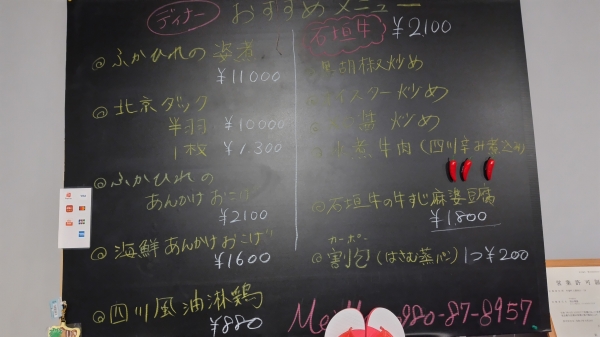 ディナー おすすめメニュー
◎ふかひれの姿煮
¥11000
◎北京ダック
半羽 ¥10000
1枚 ¥1.300
◎ふかひれの
あんかけおこげ
¥2100
◎海鮮あんかけおこげ
¥1600
◎四川風油淋鶏
¥880
石垣牛 ¥2100
黒胡椒炒め
オイスター炒め
炒め
水煮牛肉(四川辛み煮込み)
◎石垣牛の牛すじ麻婆豆腐
¥1800
カーポー
◎割包(はさむ蒸パン)1つ¥200
980-87-8957
営業許可